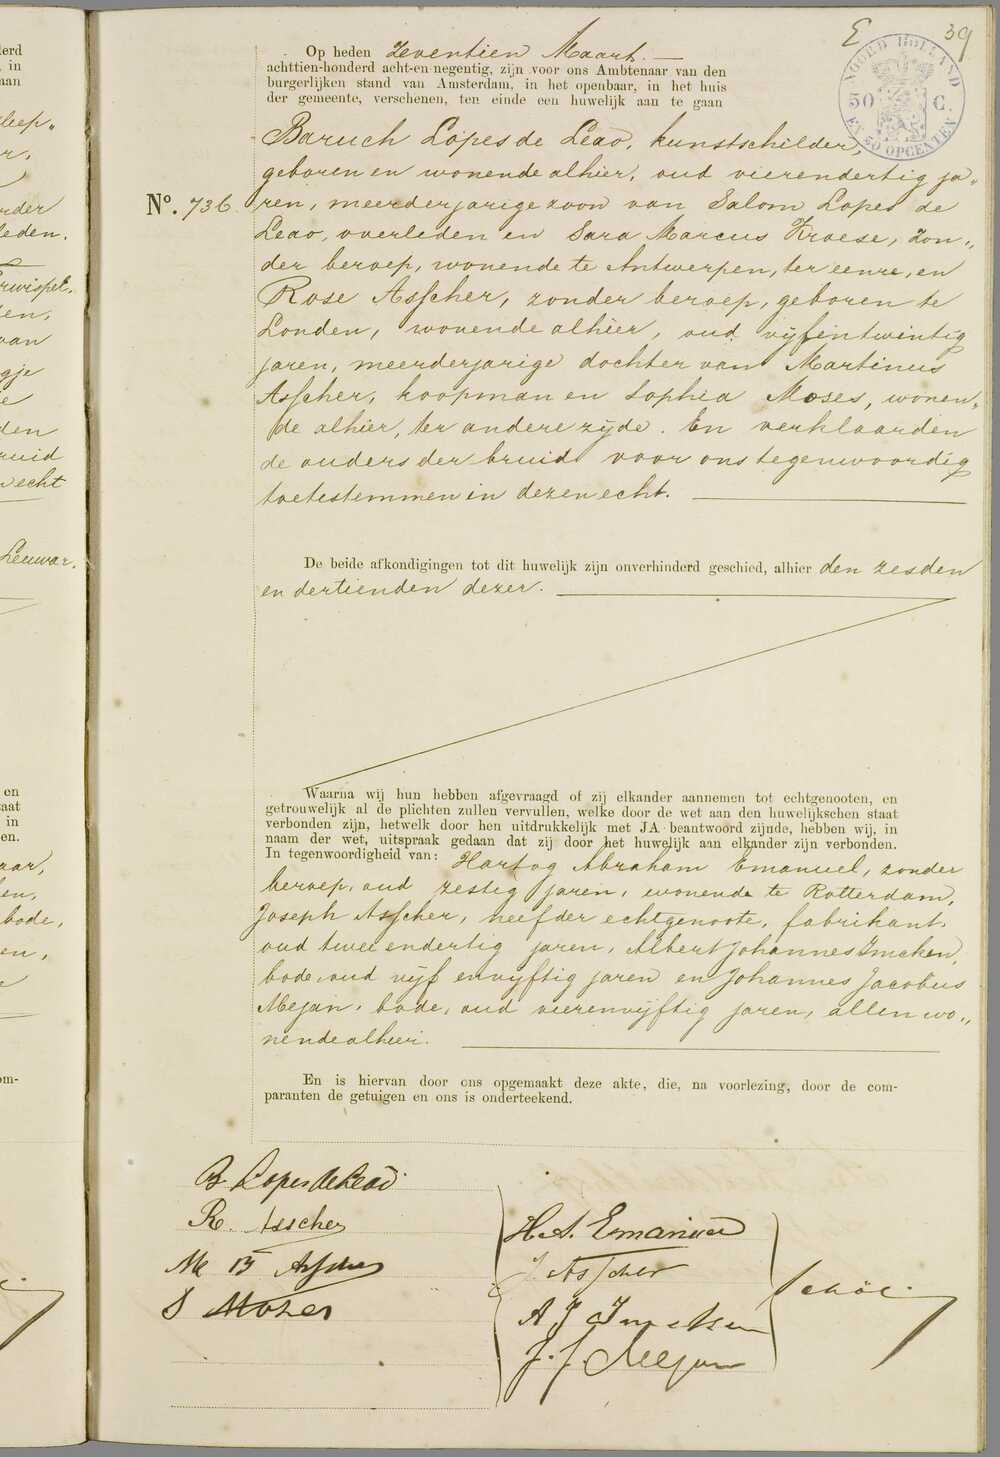 E 39
NOORD HOLLAND
50 C.
EN 50 OPCENTEN
Op heden Zeventien Maart.
achttien-honderd acht-en-negentig, zijn voor ons Ambtenaar van den
burgerlijken stand van Amsterdam, in het openbaar, in het huis
der gemeente, verschenen, ten einde een huwelijk aan te gaan
Baruch Lopes de Leao, kunstschilder,
geboren en wonende alhier, oud vierendertig ja„
No. 736 ren, meerderjarige zoon van Salom Lopes de
Leao, overleden en Sara Marcus Kroese, zon„
der beroep, wonende te Antwerpen, ter eenre, en
Rose Asscher, zonder beroep, geboren te
Londen, wonende alhier, oud vijfentwintig
jaren, meerderjarige dochter van Martinus
Asscher, koopman en Sophia Moses, wonen„
de alhier, ter andere zijde. En verklaarden
de ouders der bruid voor ons tegenwoordig
toetestemmen in dezen echt.
De beide afkondigingen tot dit huwelijk zijn onverhinderd geschied, alhier den zesden
en dertienden dezer.
Waarna wij hun hebben afgevraagd of zij elkander aannemen tot echtgenooten, en
getrouwelijk al de plichten zullen vervullen, welke door de wet aan den huwelijkschen staat
verbonden zijn, hetwelk door hen uitdrukkelijk met JA beantwoord zijnde, hebben wij, in
naam der wet, uitspraak gedaan dat zij door het huwelijk aan elkander zijn verbonden.
In tegenwoordigheid van: Hartog Abraham Emanuel, zonder
beroep, oud zestig jaren, wonende te Rotterdam,
Joseph Asscher, neef der echtgenoote, fabrikant,
oud twee endertig jaren, Albert Johannes Imeken,
bode, oud vijf envijftig jaren en Johannes Jacobus
Mejan, bode, oud vierenvijftig jaren, allen wo„
nende alhier.
En is hiervan door ons opgemaakt deze akte, die, na voorlezing, door de com-
paranten de getuigen en ons is onderteekend.
B Lopes de Leao
R. Asscher
M B Asscher
S Mozes
H. A. Emanuel
J. Asscher
A J Imeken
J. J. Mejan